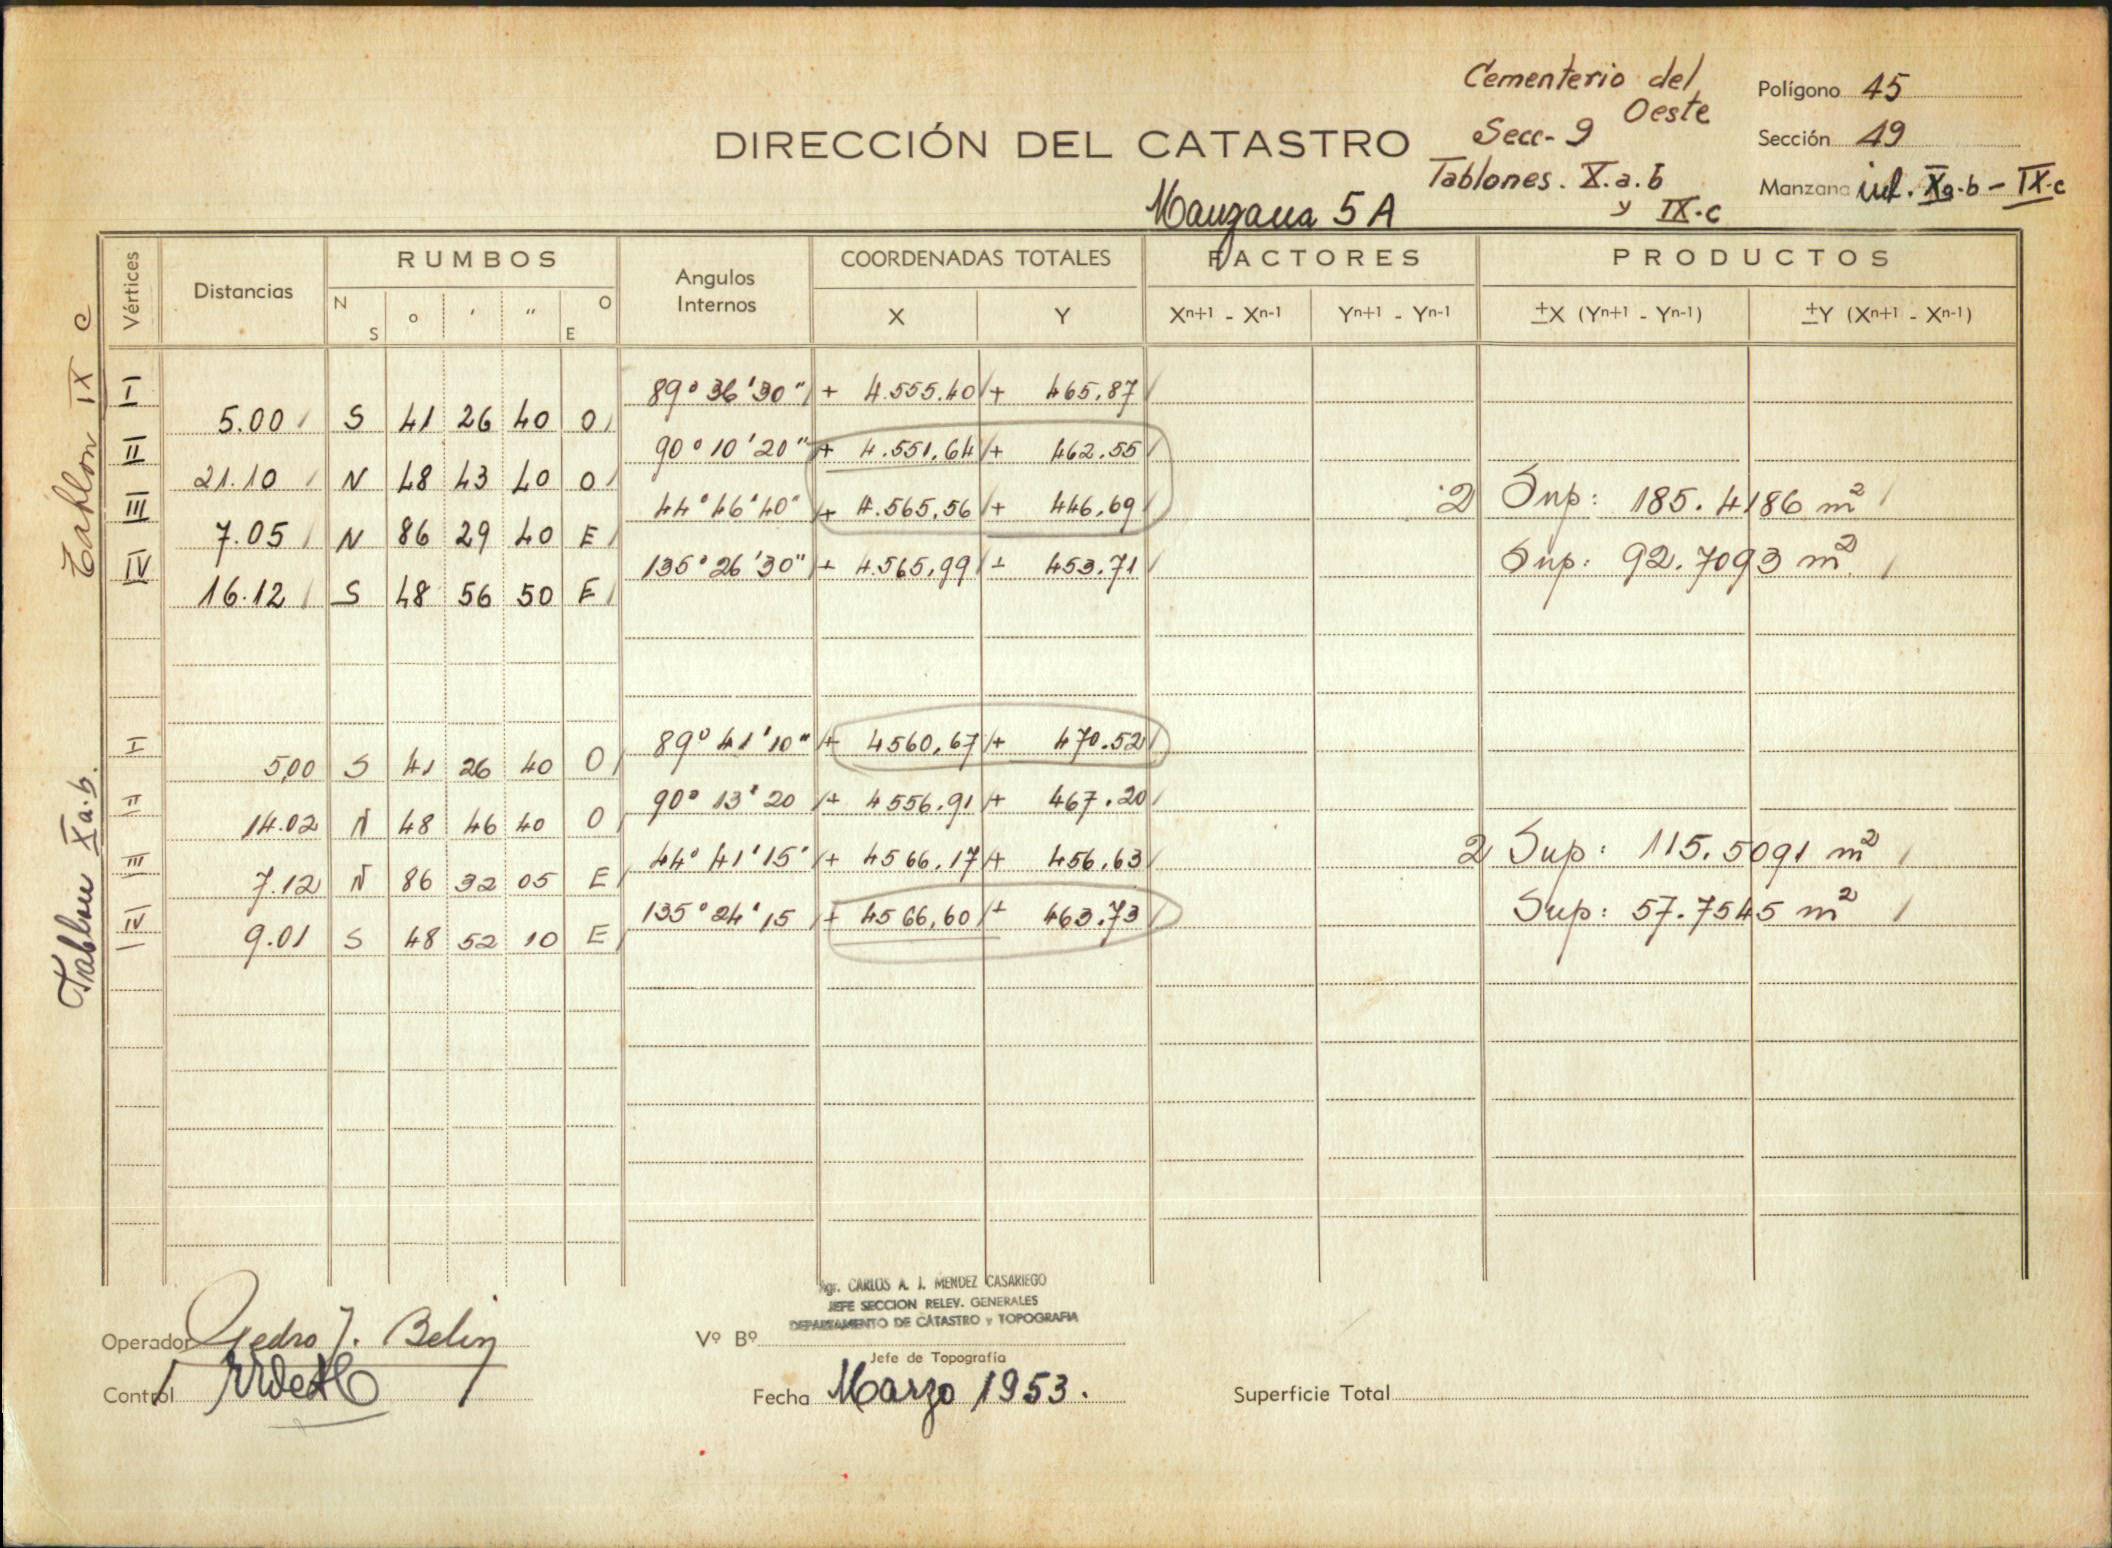 Cementerio del
Oeste
Secc- 9
Tablones. X.a.b
y IX.c
Polígono 45
Sección 49
Manzana int. Xa.b - IX.c
DIRECCIÓN DEL CATASTRO
Manzana 5 A
Vértices Distancias RUMBOS Angulos Internos COORDENADAS TOTALES FACTORES PRODUCTOS
N S o ' " O E X Y Xn+1 - Xn-1 Yn+1 - Yn-1 ±X (Yn+1 - Yn-1) ±Y (Xn+1 - Xn-1)
Tablon IX c
I 89° 36' 30" + 4.555.40 + 465.87
5.00 S 41 26 40 O
II 90° 10' 20" + 4.551,64 + 462.55
21.10 N 48 43 40 O
III 44° 46' 40" + 4.565,56 + 446,69 2 Sup: 185.4186 m²
7.05 N 86 29 40 E
IV 135° 26' 30" + 4.565,99 + 453.71 Sup: 92.7093 m²
16.12 S 48 56 50 E
Tablon Xa.b.
I 89° 41' 10" + 4560,67 + 470.52
5,00 S 41 26 40 O
II 90° 13' 20 + 4556.91 + 467.20
14.02 N 48 46 40 O
III 44° 41' 15' + 4566.17 + 456,63 2 Sup: 115.5091 m²
7.12 N 86 32 05 E
IV 135° 24' 15 + 4566,60 + 463.73 Sup: 57.7545 m²
I
9.01 S 48 52 10 E
Agr. CARLOS A. J. MENDEZ CASARIEGO
JEFE SECCION RELEV. GENERALES
DEPARTAMENTO DE CATASTRO y TOPOGRAFIA
Operador Pedro J. Belin
Vº Bº
Jefe de Topografía
Control
Fecha Marzo 1953.
Superficie Total